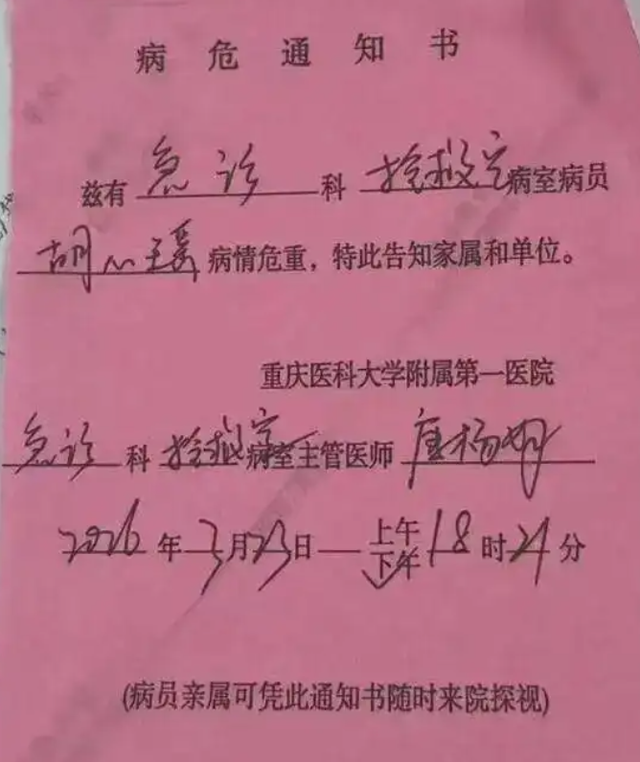 病危通知书
兹有 急诊 科 抢救室 病室病员
胡心瑶 病情危重，特此告知家属和单位。
重庆医科大学附属第一医院
急诊 科 抢救室 病室主管医师 唐杨
2026 年 3 月 23 日 上午
下午 18 时 21 分
(病员亲属可凭此通知书随时来院探视)